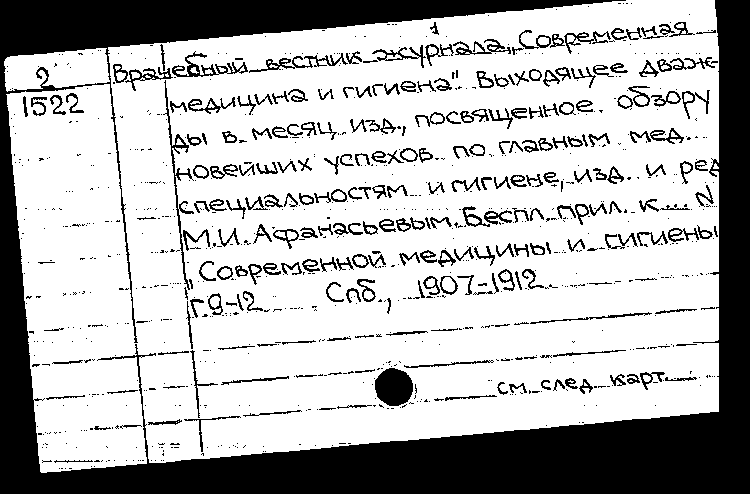 1
2
1522
Врачебный вестник журнала „Современная
медицина и гигиена". Выходящее дваж-
ды в месяц изд., посвященное обзору
новейших успехов по главным мед.
специальностям и гигиене, изд. и ред
М.И. Афанасьевым. Беспл. прил. к ... N
„Современной медицины и гигиены
г.9-12 Спб., 1907-1912
см. след. карт.